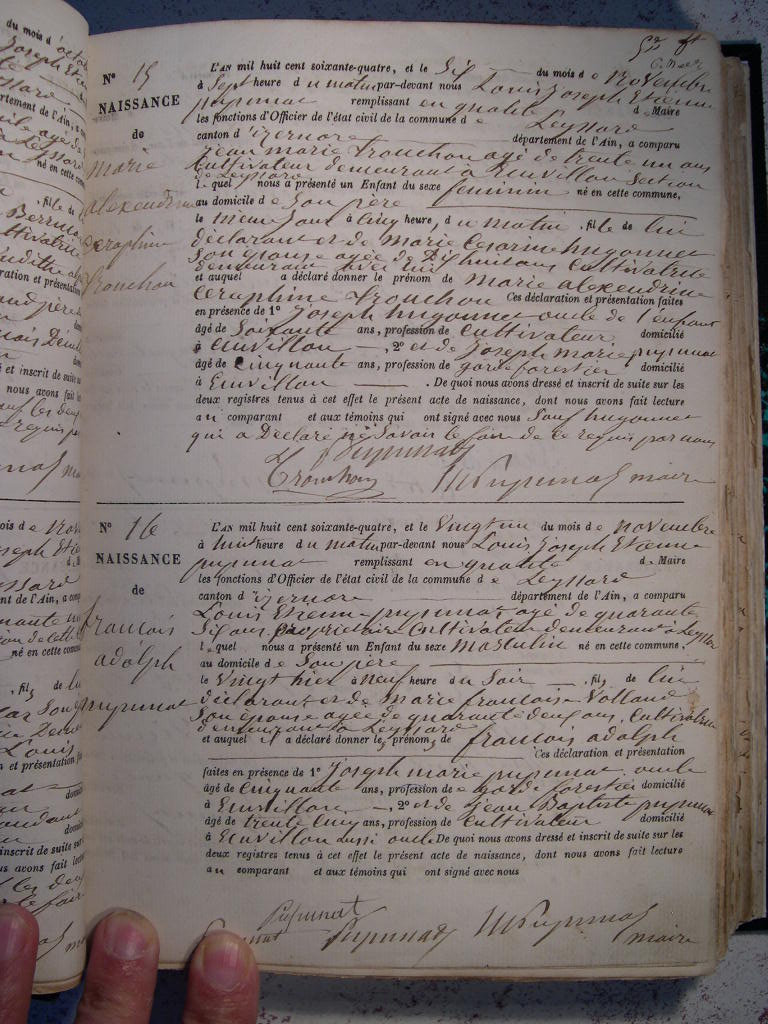 N° 15
NAISSANCE
de
marie
alexendrine
seraphine
trouchon
L'AN mil huit cent soixante-quatre, et le Six du mois de Novembre
à Sept heure du matin par-devant nous Louis Joseph Etienne
pupunat remplissant en qualité de Maire
les fonctions d'Officier de l'état civil de la commune de Leyssard
canton d'izernore département de l'Ain, a comparu
jean marie trouchon agé de trente un ans
Cultivateur demeurant à Euvillon Section
de Leyssard
lequel nous a présenté un Enfant du sexe feminin né en cette commune,
au domicile de Son père
le meme jour à Cinq heure, du matin, fille de lui
déclarant et de Marie Cesarine hugonnet
Son epouse agée de Dix huit ans Cultivatrice
demeurant avec lui
et auquel a déclaré donner le prénom de marie alexendrine
Ceraphine trouchon Ces déclaration et présentation faites
en présence de 1° joseph hugonnet oncle de l'enfant
âgé de Soixante ans, profession de Cultivateur domicilié
à Euvillon , 2° et de Joseph marie pupunat
âgé de Cinquante ans, profession de garde forestier domicilié
à Euvillon . De quoi nous avons dressé et inscrit de suite sur les
deux registres tenus à cet effet le présent acte de naissance, dont nous avons fait lecture
au comparant et aux témoins qui ont signé avec nous Sauf hugonnet
qui a Déclaré ne Savoir le faire de ce requis par nous
Pupunat
Trouchon Pupunat maire
N° 16
NAISSANCE
de
francois
adolph
pupunat
L'AN mil huit cent soixante-quatre, et le Vingt un du mois de novembre
à huit heure du matin par-devant nous Louis Joseph Etienne
pupunat remplissant en qualité de Maire
les fonctions d'Officier de l'état civil de la commune de Leyssard
canton d'izernore département de l'Ain, a comparu
Louis Etienne pupunat agé de quarante
Six ans, proprietaire Cultivateur demeurant à Leyssard
lequel nous a présenté un Enfant du sexe masculin né en cette commune,
au domicile de Son père
le Vingt hier à neuf heure du Soir , fils de lui
declarant et de Marie francoise Volland
Son epouse agée de quarante deux ans, Cultivatrice
demeurant à Leyssard
et auquel il a déclaré donner les prénoms de francois adolph
Ces déclaration et présentation
faites en présence de 1° joseph marie pupunat oncle
âgé de Cinquante ans, profession de garde forestier domicilié
à Euvillon , 2° et de jean Baptiste pupunat
âgé de trente Cinq ans, profession de Cultivateur domicilié
à Euvillon aussi oncle De quoi nous avons dressé et inscrit de suite sur les
deux registres tenus à cet effet le présent acte de naissance, dont nous avons fait lecture
au comparant et aux témoins qui ont signé avec nous
Pupunat
Pupunat Pupunat maire